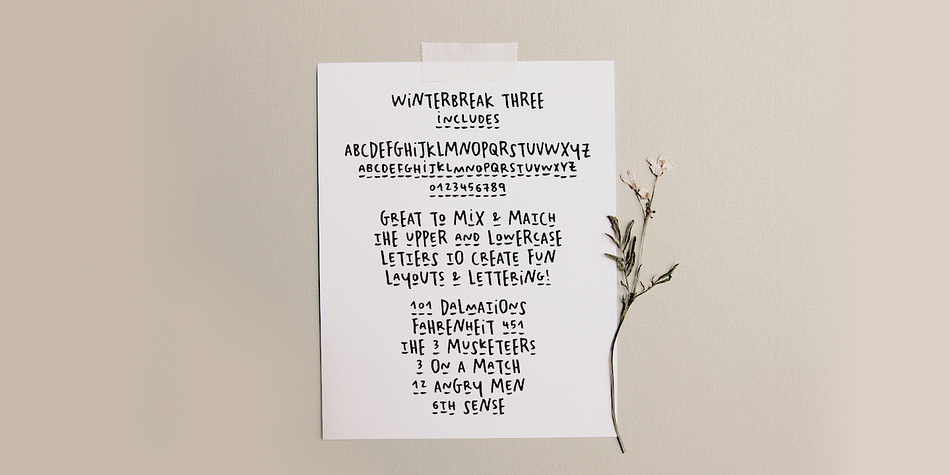 WiNTERBREAK THREE
iNCLUDES
ABCDEFGHiJKLMNOPQRSTUVWXYZ
ABCDEFGHiJKLMNOPQRSTUVWXYZ
0123456789
GREAT TO MiX & MATCH
THE UPPER AND LOWERCASE
LETTERS TO CREATE FUN
LAYOUTS & LETTERiNG!
101 DALMATiONS
FAHRENHEiT 451
THE 3 MUSKETEERS
3 ON A MATCH
12 ANGRY MEN
6TH SENSE